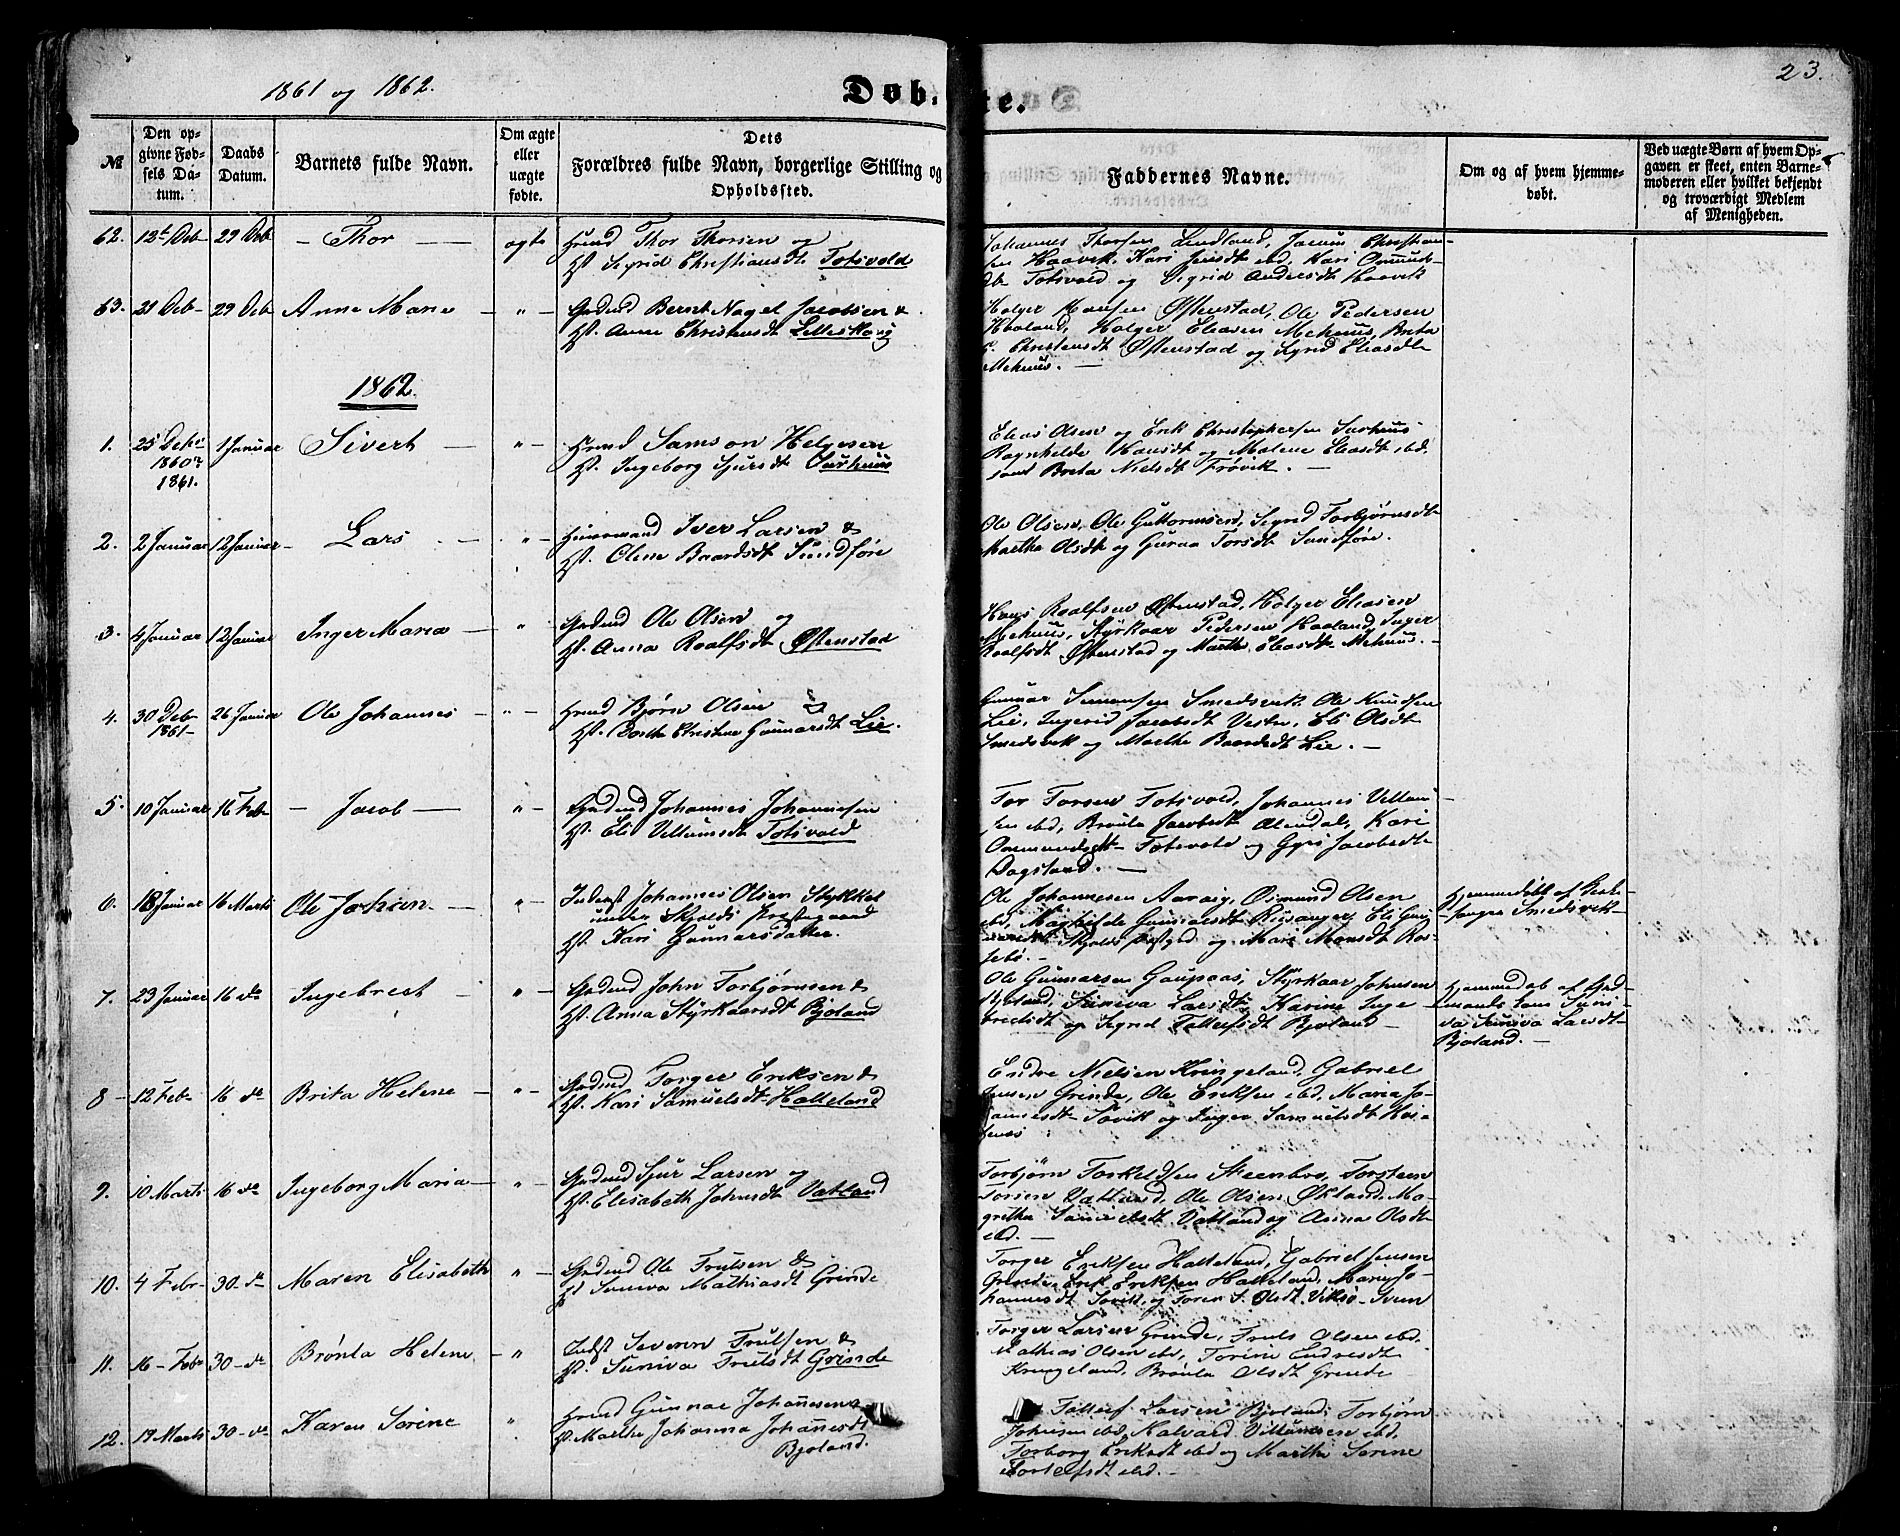 1861 og 1862.
Døb- te.
23.
№
Den op-
givne Fød-
sels Da-
tum.
Daabs
Datum.
Barnets fulde Navn.
Om ægte
eller
uægte
fødte.
Dets
Forældres fulde Navn, borgerlige Stilling og
Opholdssted.
Faddernes Navne.
Om og af hvem hjemme-
døbt.
Ved uægte Børn af hvem Op-
gaven er skeet, enten Barne-
moderen eller hvilket bekjendt
og troværdigt Medlem
af Menigheden.
62. 12t Deb 29 Deb - Thor - ægte Thor Thorsen og
H. Sigrid Christiansdt Totsvold
Johannes Thorsen Lindland, Christian-
sen Haavik, Kari ibd, Kari Osmunds-
dt Totsvold og Sigrid Andersdt Haavik
63. 21 Deb 29 Deb Anne Marie - " - Grdmd Bernt Nagel Jacobsen &
H. Anne Christensdt Lilleskog
Holger Hansen Østenstad, Ole Pedersen
Haaland, Holger Eliasen Mehuus, Brita
Christensdt Østenstad og Eliasdt
Mehuus. -
1862.
1. 25 Deb 1860 1861. 1 Januar Sivert - " - Samson Helgesen
H. Ingeborg Sjursdt
Elias Olsen og Erik Christophersen
Ragnhilde Hansdt og Malene Eliasdt ibd,
samt Brita Nielsdt Frøvik. -
2. 2 Januar 12 Januar - Lars - " - Huusmand Iver Larsen &
H. Oline Baardsdt Sundføre
Ole Olsen, Ole Guttormsen, Sigrid Torbjørnsdt
Martha Olsdt og Guroa Torsdt Sundføre.
3. 4 Januar 12 Januar Inger Maria - " Grdmd Ole Olsen og
H. Anna Roalfsdt Østenstad
Hans Roalfsen Østenstad, Holger Eliasen
Mehuus, Styrkaar Pedersen Haaland, Inger
Roalfsdt Østenstad og Marthe Eliasdt Mehuus. -
4. 30 Deb 1861 - 26 Januar Ole Johannes - " - Bjørn Olsen &
H. Dorthe Christine Gunnarsdt Lie.
Gunnar Simonsen Smedsvik, Ole Knudsen
Lie, Ingerid Jacobsdt Vestre, Eli Olsdt
Smedsvik og Marthe Baardsdt Lie. -
5. 10 Januar 16 Feb - Jacob - " - Grdmd Johannes Johannesen
H. Eli Villumsdt Totsvold
Tor Torsen Totsvold, Johannes Villum-
sen ibd, Brønla Jacobsdt Alendal, Kari
Osmundsdt Totsvold og Guri Jacobsdt
Dagsland. -
6. 18 Januar 16 Marts Ole Johan - " - Inderst Johannes Olsen Stykket
under Skjolds Prestegaard
H. Kari Gunnarsdatter.
Ole Johannesen Aarvig, Osmund Olsen
ibd, Maghilde Gunnarsdt, Eli Gun-
narsdt Skjolds prestgrd og Mari Monsdt Ros-
sebø. -
Hjemmedøbt af Kirke-
sanger Smedsvik -
7. 23 Januar 16 do Ingebrect - " - Grdmd John Torbjørnsen &
H. Anna Styrkaarsdt Bjoland
Ole Gunnarsen Gaupaas, Styrkaar Johnsen
Bjoland, Suniva Larsdt, Karine Inge-
brectsdt og Sigrid Tollefsdt Bjoland -
Hjemmedøb af Grd-
mands Suni-
va Larsdt
Bjoland. -
8 - 12 Feb 16 do Brita Helene - " - Grdmd Torger Eriksen &
H. Kari Samuelsdt Halleland
Endre Nielsen Kringeland, Gabriel
Jensen Grinde, Ole Eriksen ibd, Maria Jo-
hannesdt Søvik og Inger Samuelsdt
9. 10 Marts 16 do Ingeborg Maria - " - Grdmd Sjur Larsen og
H. Elisabeth Johnsdt Vatland
Torbjørn Torkelsen Steenbro, Torsten
Torsen Vatland, Ole Olsen Økland, Ma-
grethe Samuelsdt Vatland og Anna Olsdt
ibd. -
10. 4 Febr 30 - do Maren Elisabeth " - Grdmd Ole Trulsen &
H. Suniva Mathiasdt Grinde
Torger Eriksen Halleland, Gabriel Jensen
Grinde, Erik Eriksen Halleland, Marie Jo-
hannesdt Søvik, og Toren S. Olsdt Viksø -
11. 16 - Feb 30 - do Brønla Helene - " Indst Severin Trulsen &
H. Suniva Trulsdt Grinde
Torger Larsen Grinde, Truls Olsen ibd.
Mathias Olsen ibd, Torine Endresdt
Kringeland, Brønla Olsdt Grinde
12. 19 Marts 30 - do Karen Serine " Gunnar Johannesen &
H. Marthe Johanna Johannesdt
Bjoland.
Tollef Larsen Bjoland, Torbjørn
Johnsen ibd, Halvard Villumsen ibd.
Torborg Eriksdt ibd og Martha Serine
Tollefsdt ibd. -